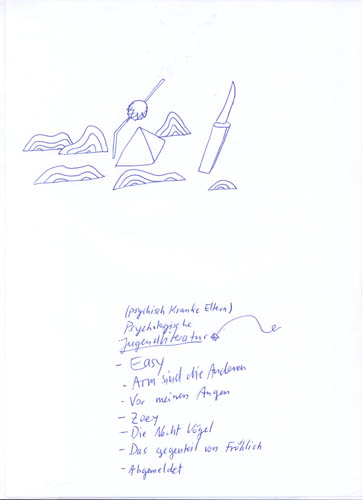 (psychisch Kranke Eltern)
Psychologische
Jugendliteratur
- Easy
- Arm sind die Anderen
- Vor meinen Augen
- Zoey
- Die Nacht Vögel
- Das gegenteil von Fröhlich
- Abgemeldet